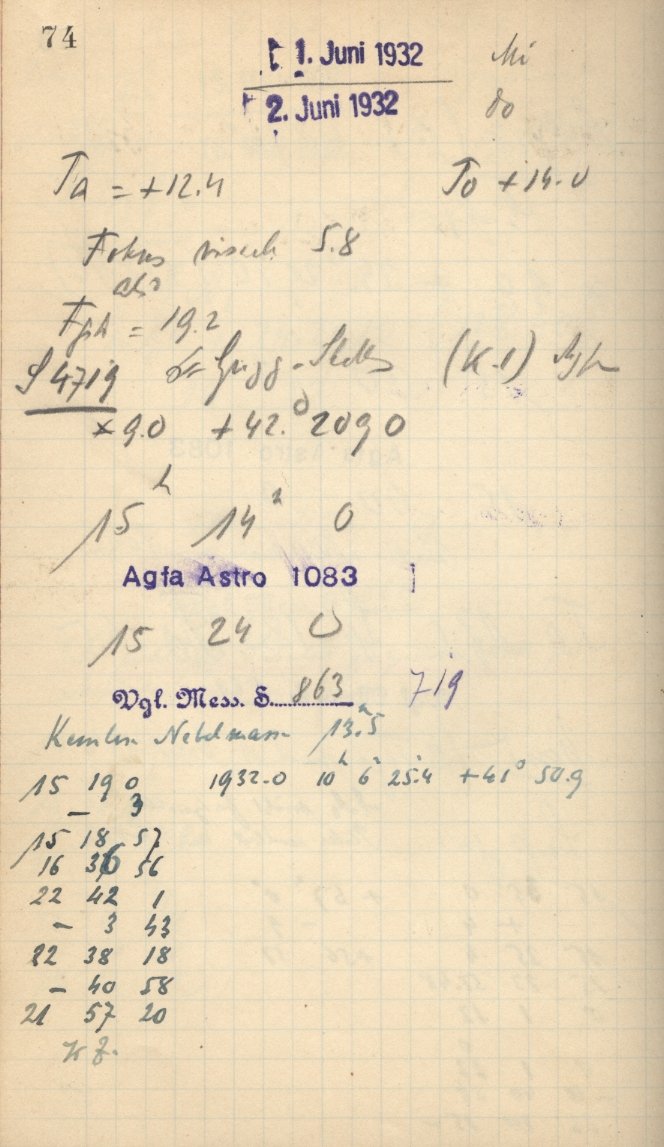 74
1. Juni 1932 Mi
2. Juni 1932 Do
Ta = +12.4 To +14.0
Fokus visuell 5.8
also
Fph = 19.2
S 4719 Grigg-Skell (K.1)
9.0 +42.° 2090
15h 14m 0
Agfa Astro 1083
15 24 0
Vgl. Mess. S. 863 719
Kernlose Nebelmasse 13.m5
15 19 0 1932.0 10h 6m 25.4 +41° 50.9
- 3
15 18 57
16 36 56
22 42 1
- 3 43
22 38 18
- 40 58
21 57 20